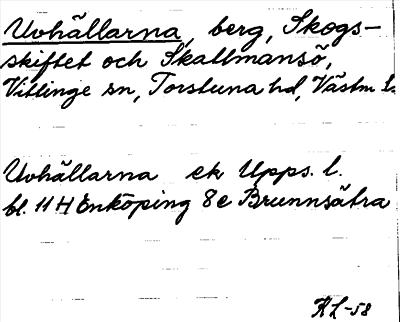 Uvhällarna, berg, Skogs-
skiftet och Skattmansö,
Vittinge sn, Torstuna hd, Västm. l.
Uvhällarna ek Upps. l.
bl. 11 H Enköping 8e Brunnsätra
RL-58